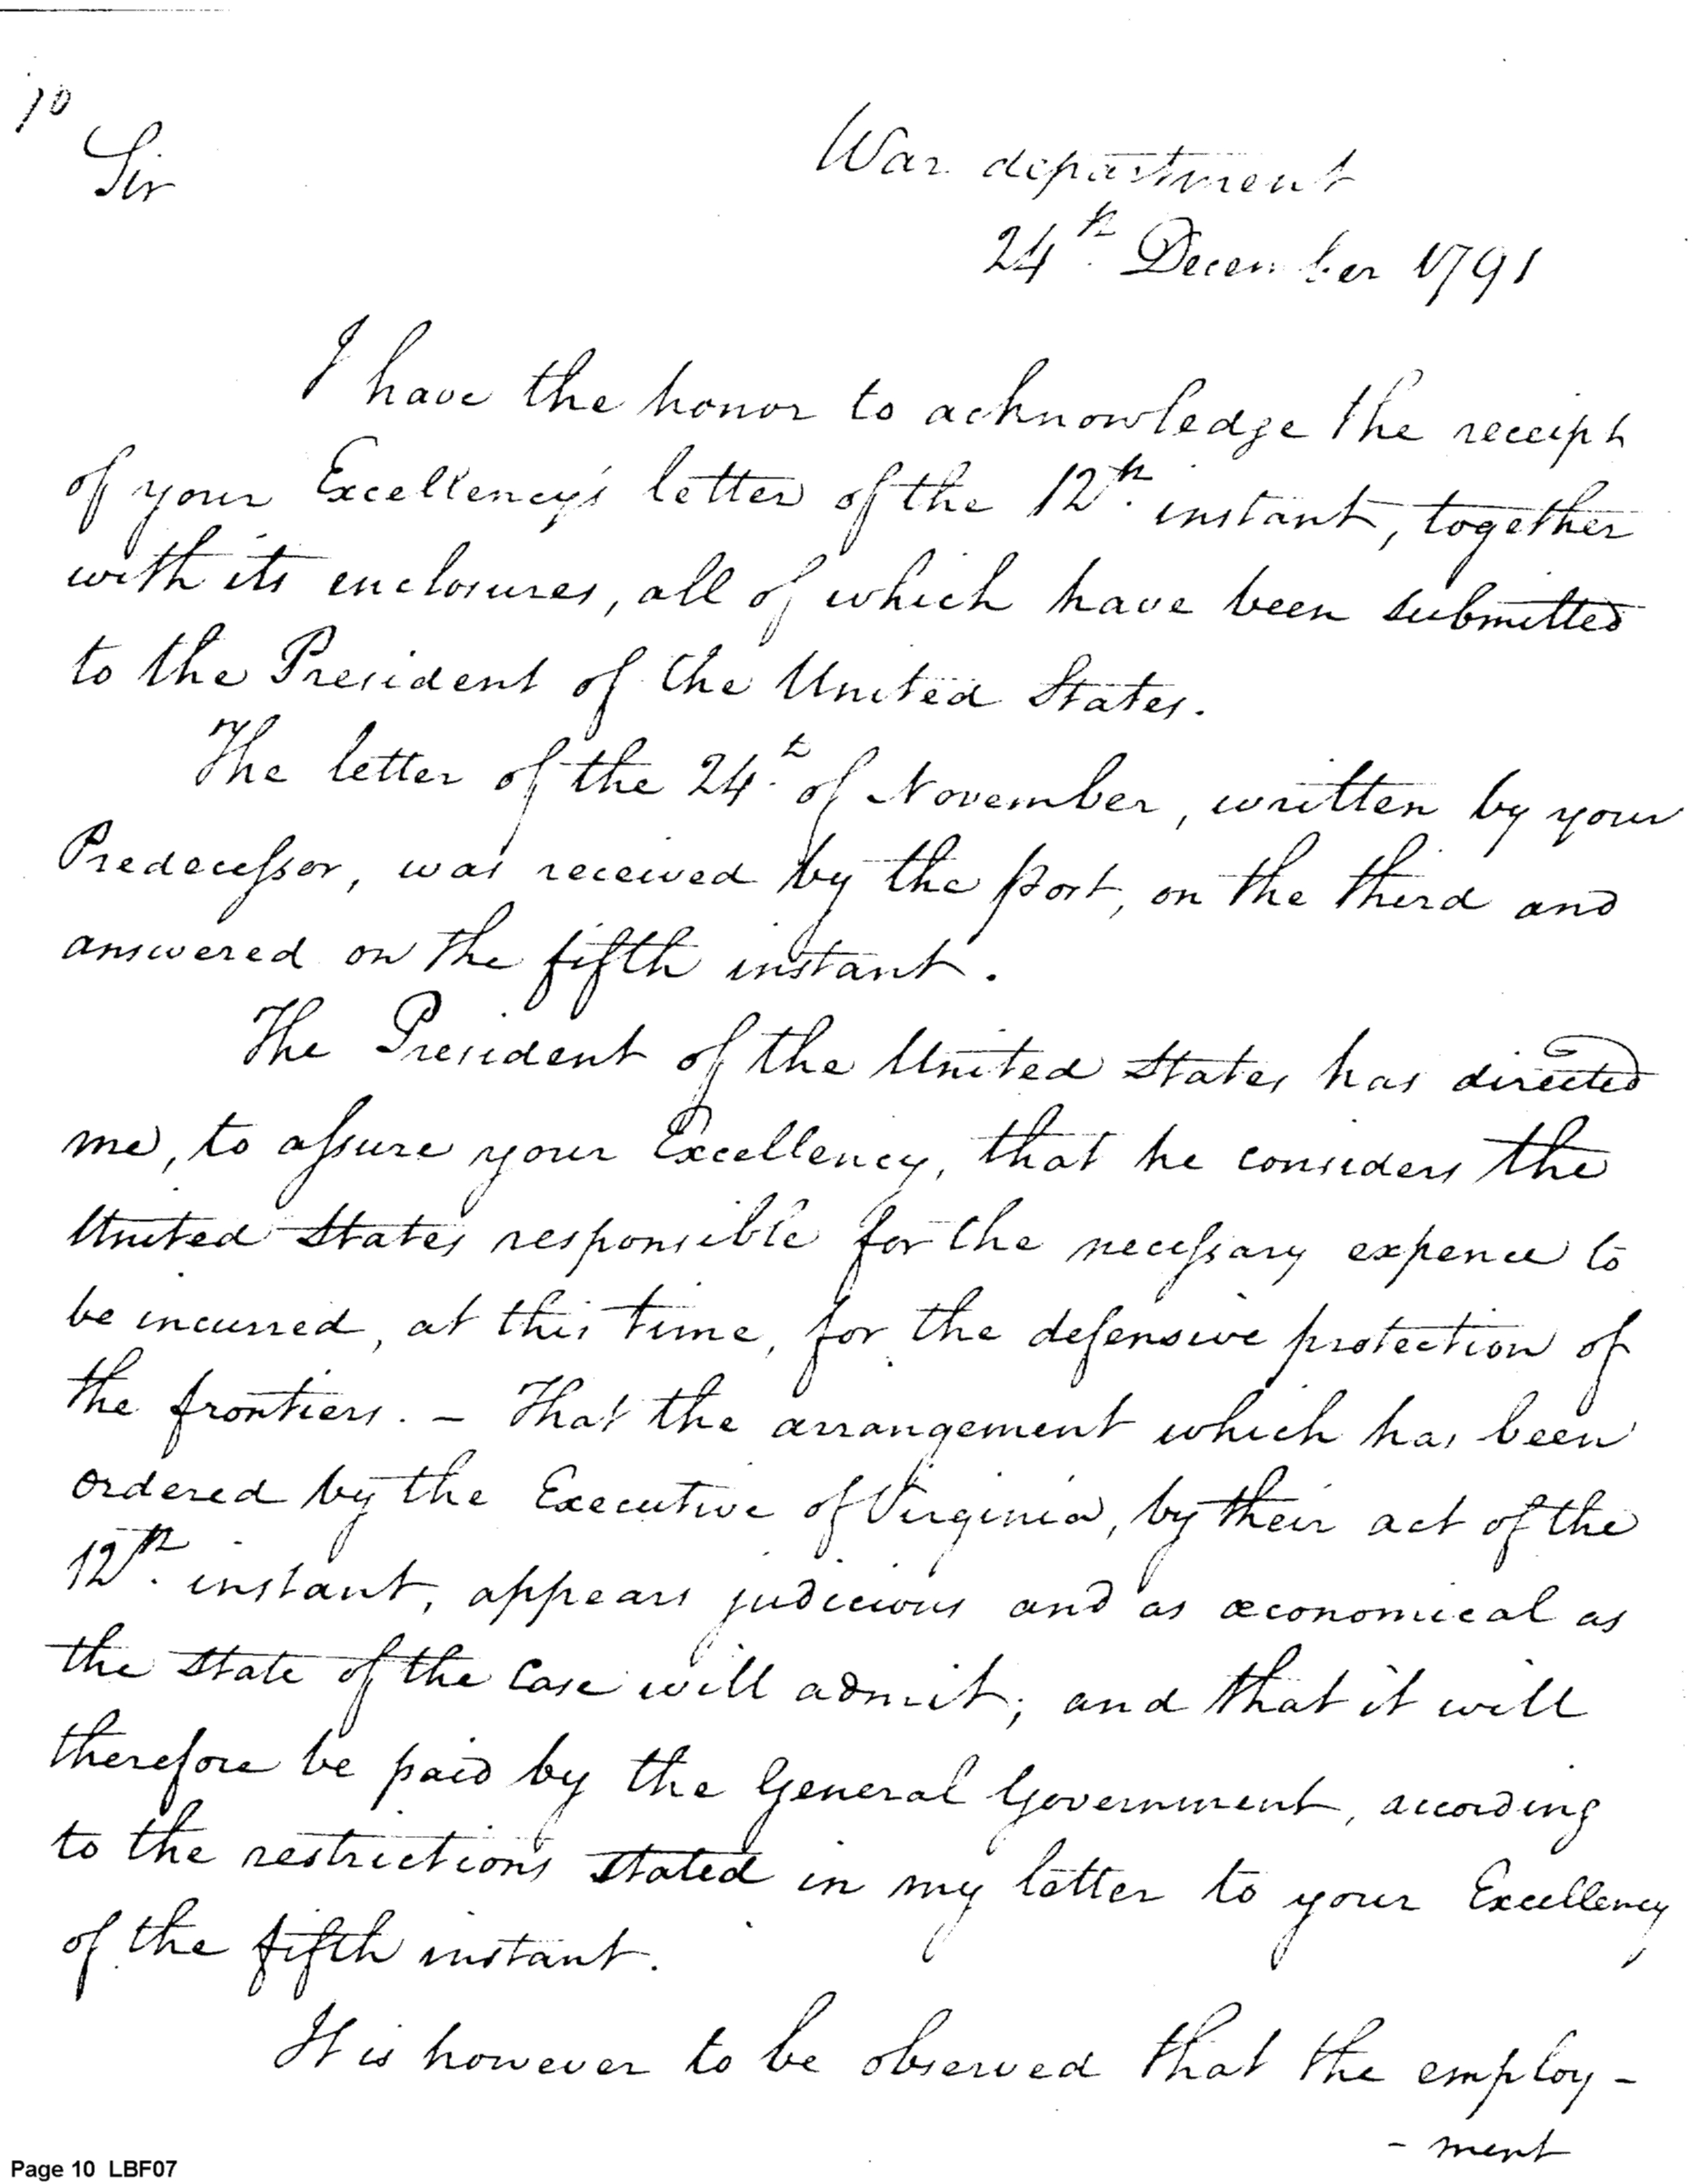 10
Sir
War department
24th December 1791
I have the honor to acknowledge the receipt
of your Excellency's letter of the 12th instant, together
with its enclosures, all of which have been submitted
to the President of the United States.
The letter of the 24th of November, written by your
Predecessor, was received by the post, on the third and
answered on the fifth instant.
The President of the United States has directed
me, to assure your Excellency, that he considers the
United States responsible for the necessary expence to
be incurred, at this time, for the defensive protection of
the frontiers. – That the arrangement which has been
ordered by the Executive of Virginia, by their act of the
12th instant, appears judicious and as œconomical as
the state of the case will admit; and that it will
therefore be paid by the General Government, according
to the restrictions stated in my letter to your Excellency
of the fifth instant.
It is however to be observed that the employ-
- ment
Page 10 LBF07